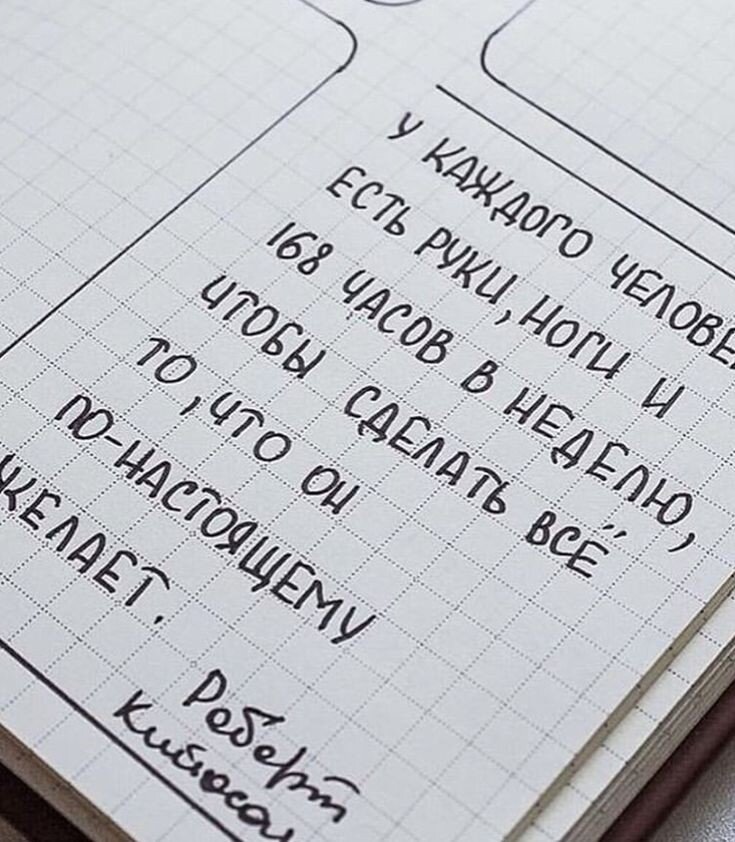 У КАЖДОГО ЧЕЛОВЕ
ЕСТЬ РУКИ, НОГИ И
168 ЧАСОВ В НЕДЕЛЮ,
ЧТОБЫ СДЕЛАТЬ ВСЁ
ТО, ЧТО ОН
ПО-НАСТОЯЩЕМУ
ЖЕЛАЕТ.
Роберт
Кийосаи